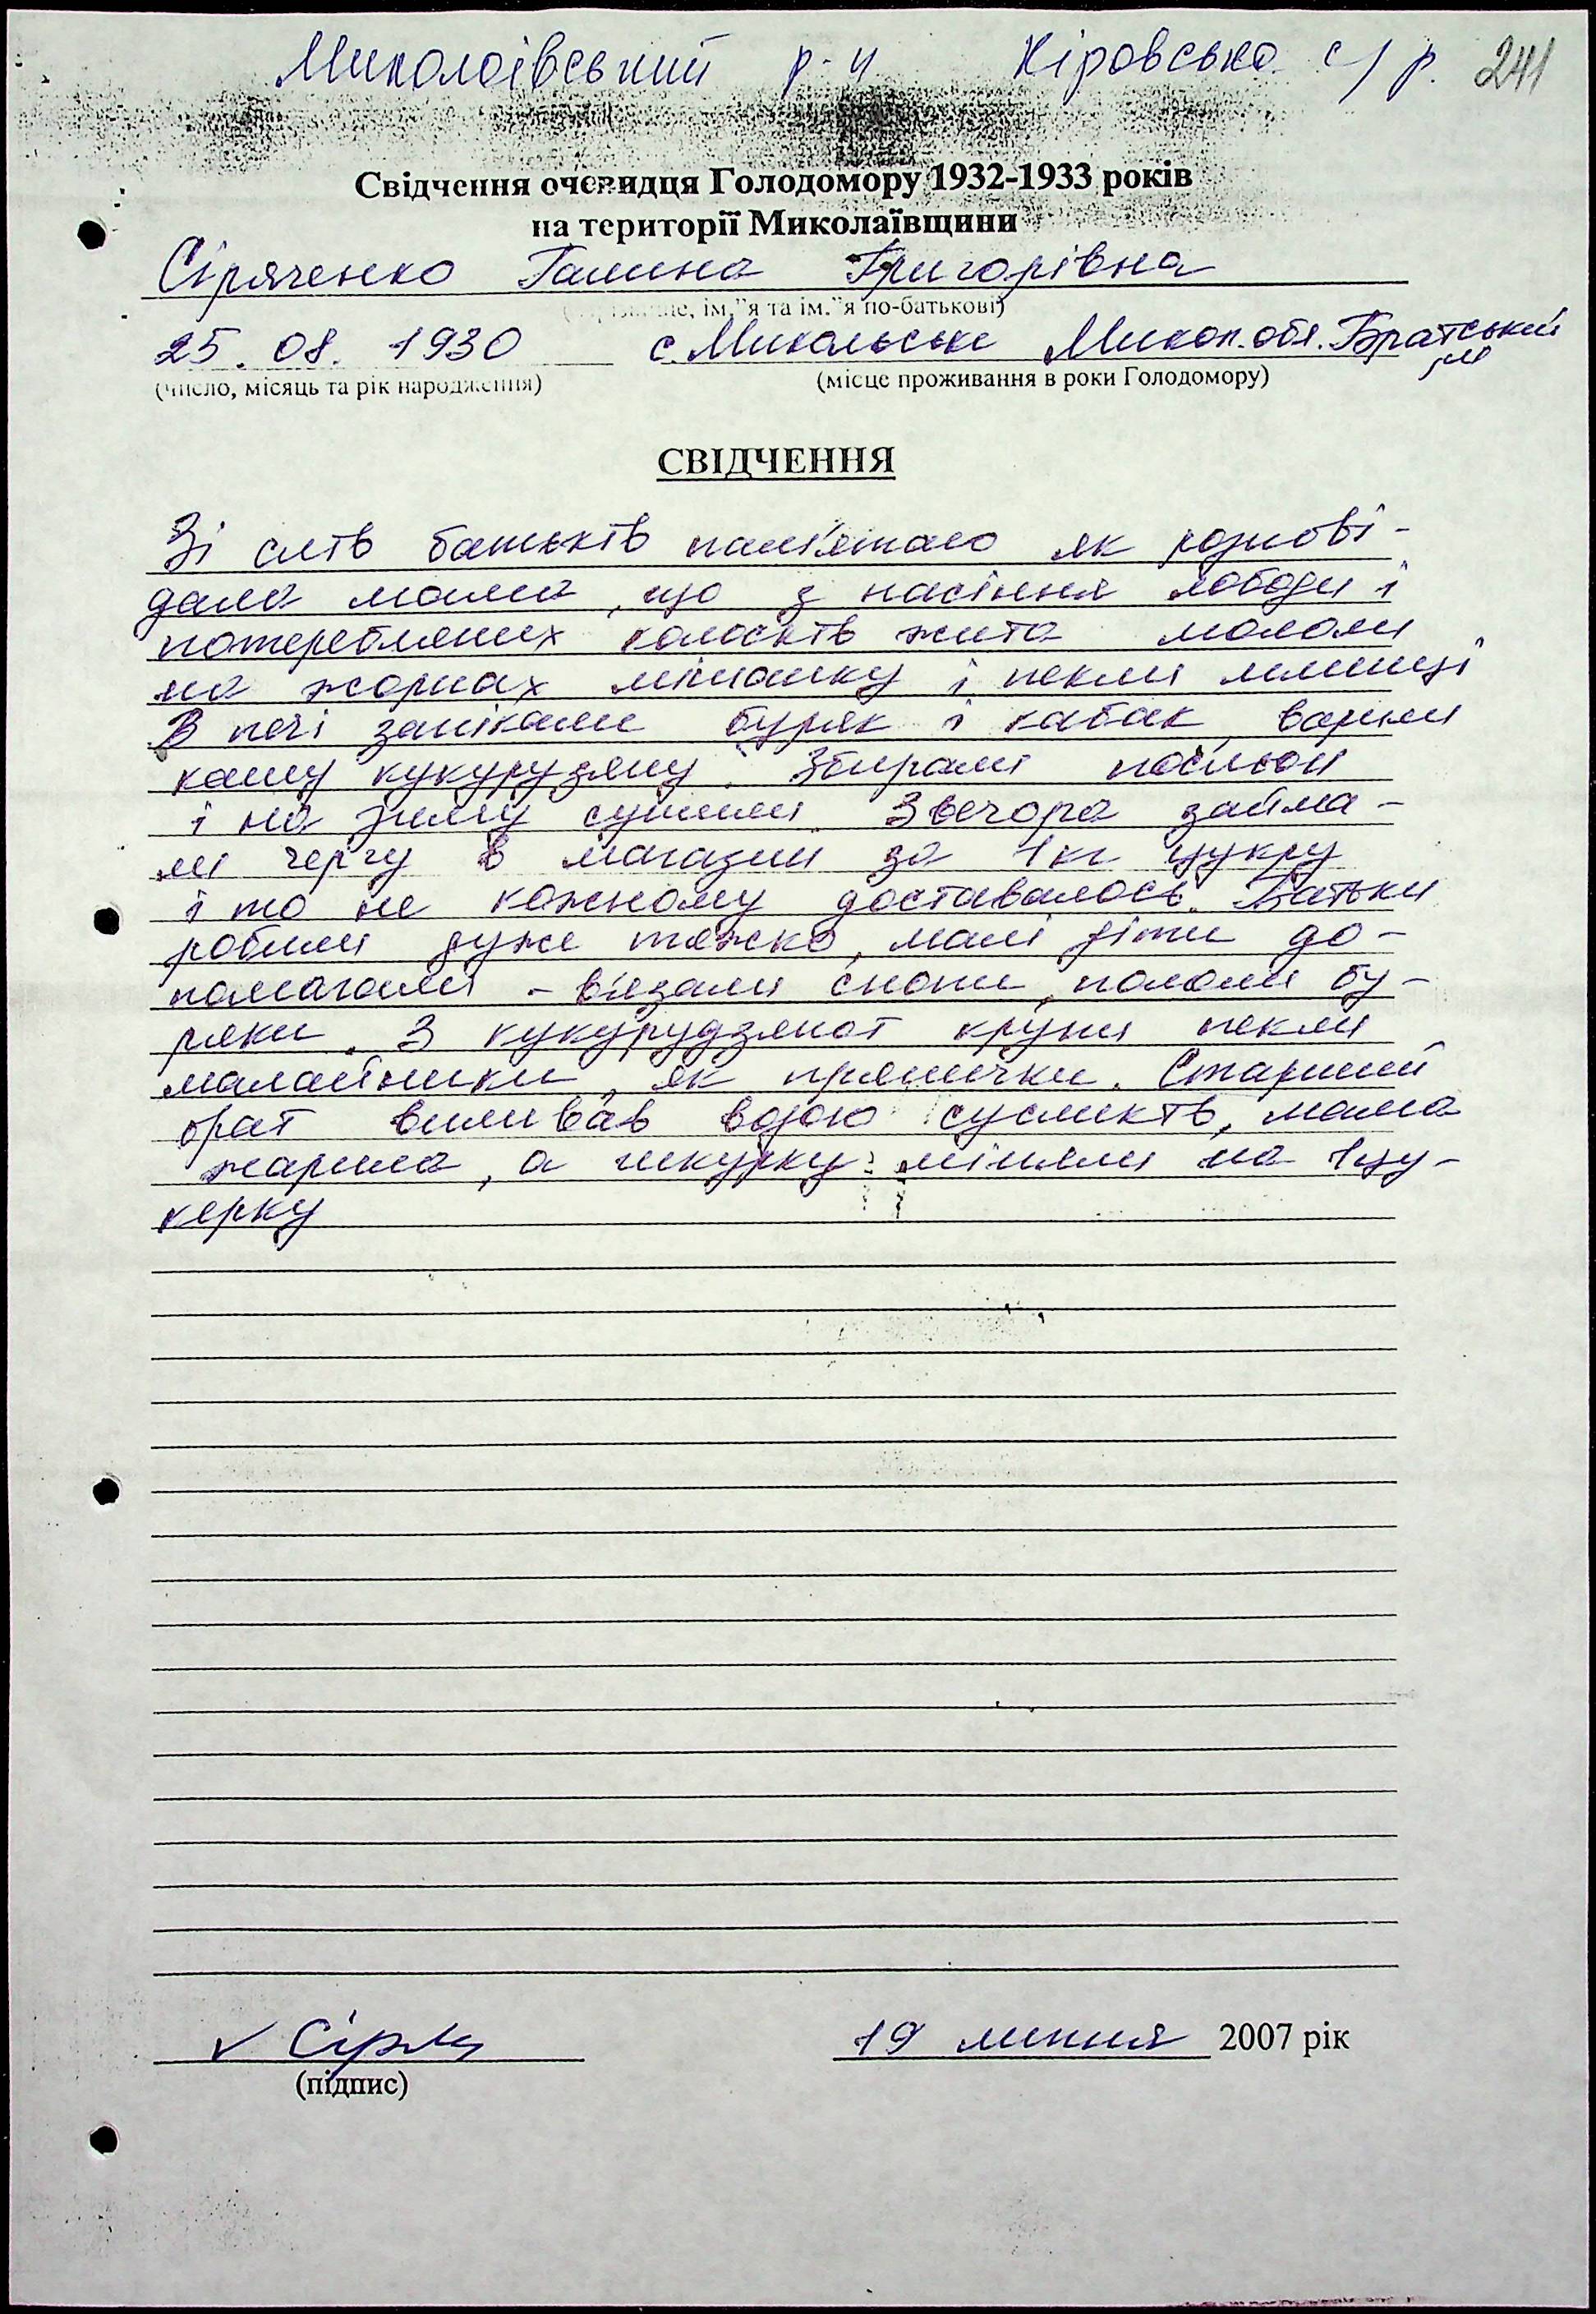 Миколоївський р-н Кіровсько с/р. 241
Свідчення очевидця Голодомору 1932-1933 років
на території Миколаївщини
Сіряченко Галина Григорівна
ім."я та ім."я по-батькові)
25. 08. 1930 с. Микольське Микол. обл. Братський
(число, місяць та рік народження) (місце проживання в роки Голодомору)
СВІДЧЕННЯ
Зі слів батьків пам'ятаю як розпові-
дала мама, що з насіння лободи і
потереблених колосків жита мололи
на жорнах мішанку і пекли млинці
В печі запікали буряк і кабак, варили
кашу кукурузяну. Збирали пасльон
і на зиму сушили. Звечора займа-
ли чергу в магазин за 1 кг цукру
і то не кожному доставалось. Батьки
робили дуже тяжко, малі діти до-
помагали - в'язали снопи, пололи бу-
ряки. З кукурудзяної крупи пекли
малайники, як прянички. Старший
брат виливав водою сусликів, мама
жарила, а шкурку міняли на 1 цу-
керку
19 липня 2007 рік
(підпис)